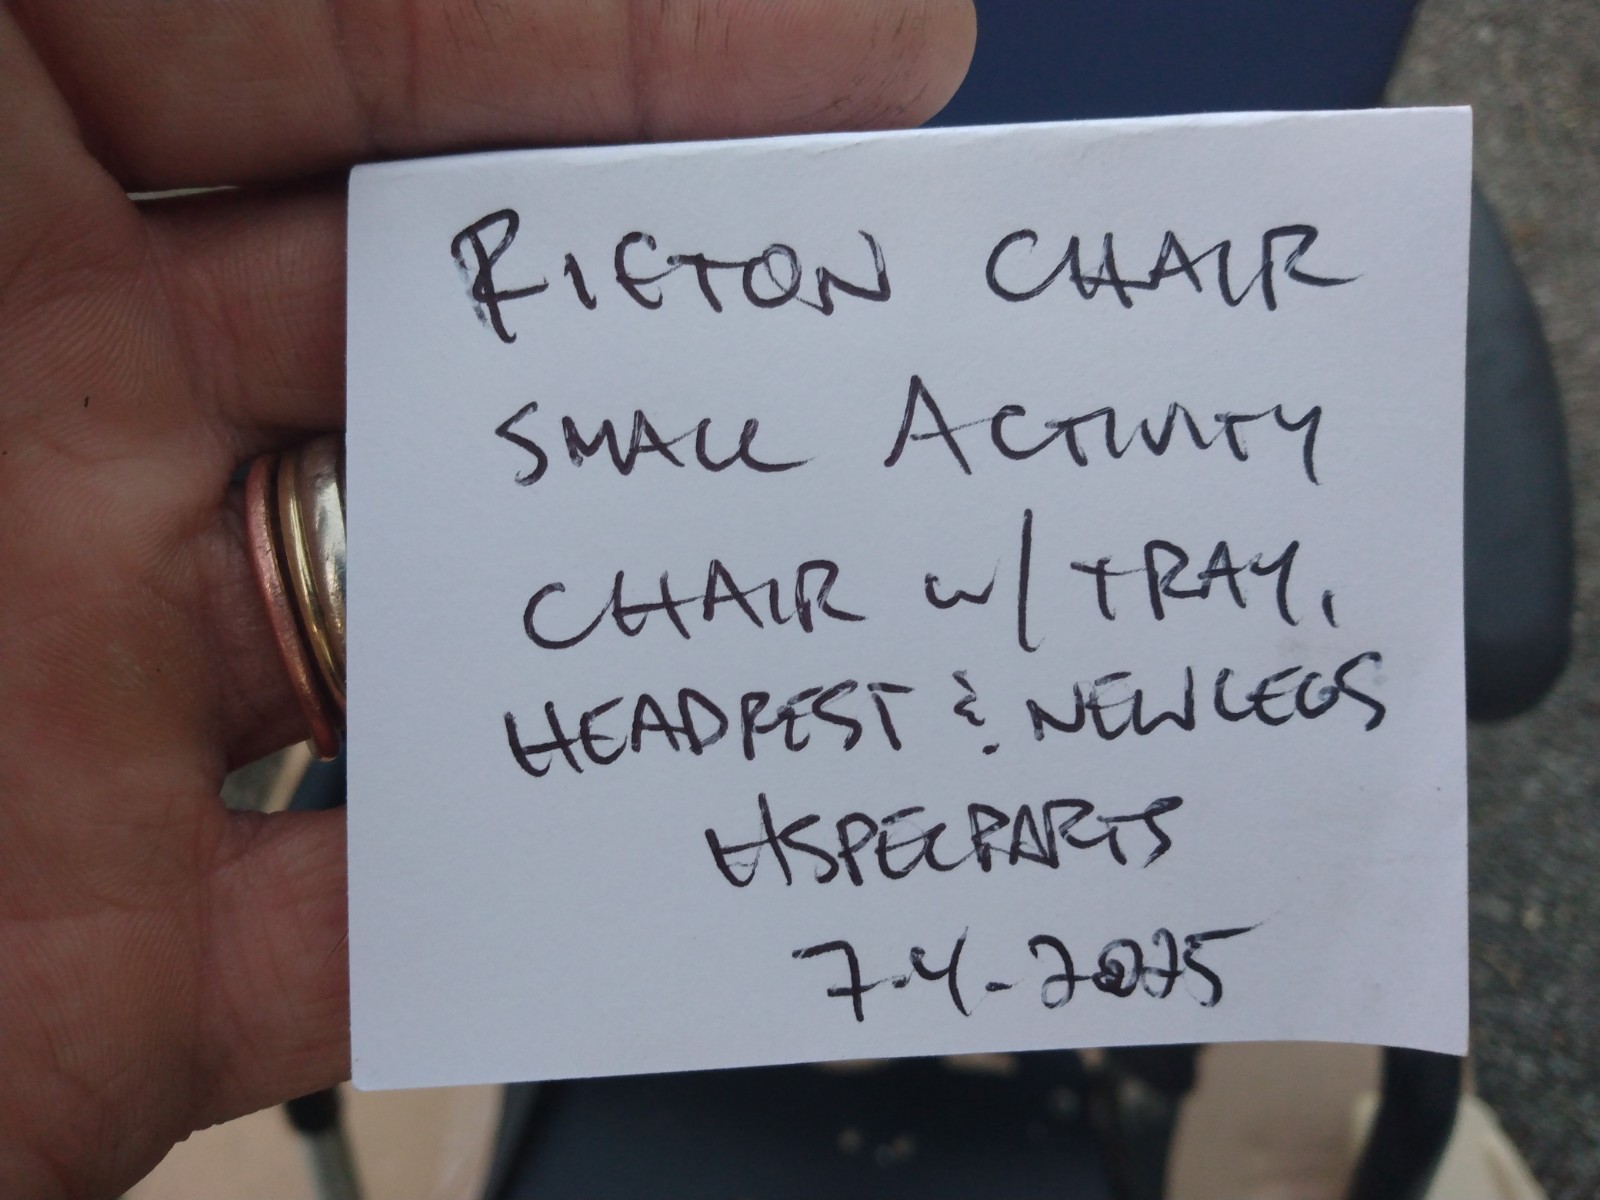 RIFTON CHAIR
SMALL ACTIVITY
CHAIR W/ TRAY,
HEADREST & NEW LEGS
HSPECPARTS
7-4-2025